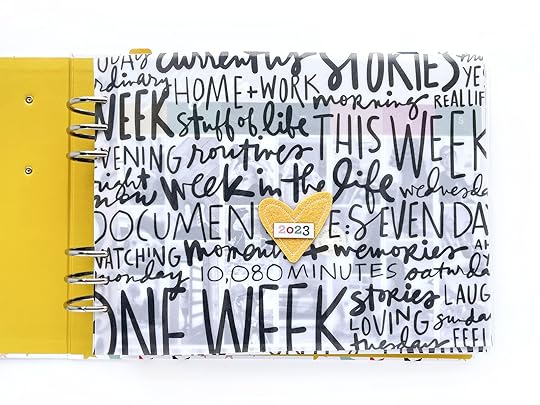 current us STORIES
ordinary HOME + WORK morning REAL LIF
WEEK stuff of life THIS WEEK
EVENING routines
right now week in the life wednesday
DOCUMEN E: SEVEN DA
2023
WATCHING moments + memories
monday 10,080 MINUTES saturda
ONE WEEK stories LAUG
LOVING sunda
tuesday FEEL